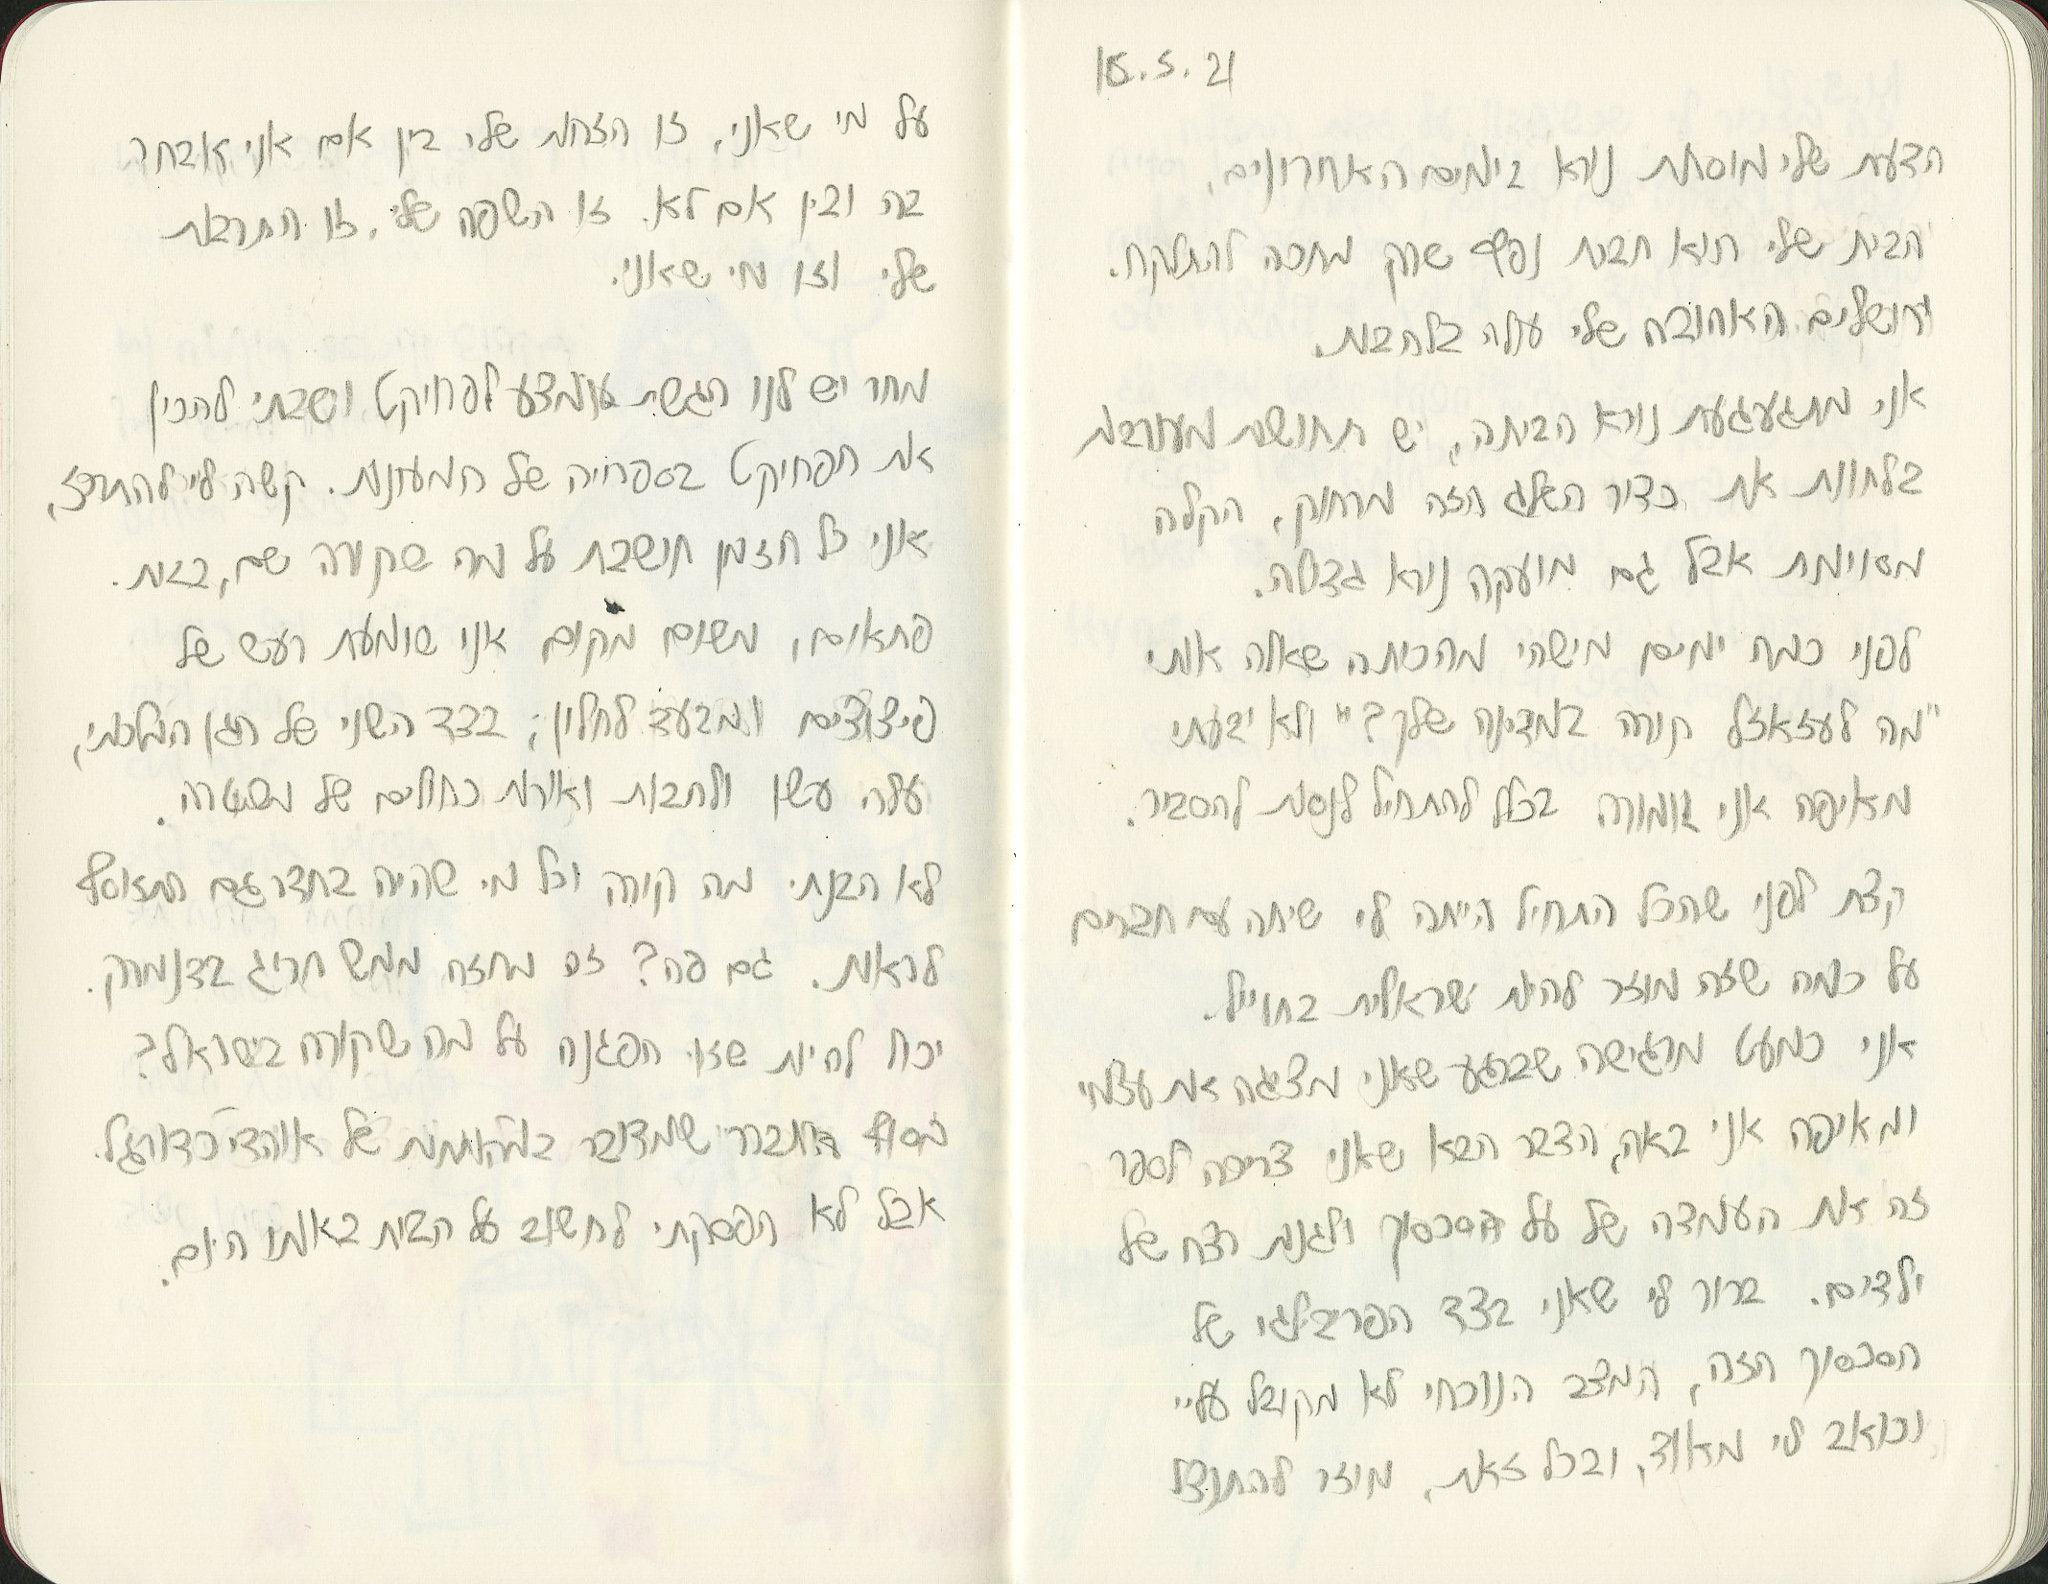 18.5.21
הדעת שלי מוסחת נורא בימים האחרונים.
הבית שלי הוא חבית נפץ שרק מחכה להתלקח.
ירושלים האהובה שלי עולה בלהבות.
אני מתגעגעת נורא הביתה, יש תחושות מעורבות
בלחוות את כדור השלג הזה מרחוק, הקלה
מסוימת אבל גם מועקה נורא גדולה.
לפני כמה ימים מישהי מהכיתה שאלה אותי
"מה לעזאזל קורה במדינה שלך?" ולא ידעתי
מאיפה אני אמורה בכלל להתחיל לנסות להסביר.
קצת לפני שהכל התחיל הייתה לי שיחה עם חברים
על כמה שזה מוזר להיות ישראלית בחו״ל.
אני כמעט מרגישה שברגע שאני מציגה את עצמי
ומאיפה אני באה, הדבר הבא שאני צריכה לספר
זה את העמדה שלי על הסכסוך ולגנות רצח של
ילדים. ברור לי שאני בצד הפריבילגי של
הסכסוך הזה, המצב הנוכחי לא מקובל עליי
וכואב לי מאוד, ובכל זאת, מוזר להתנצל
על מי שאני, זו הזהות שלי בין אם אני אבחר
בה ובין אם לא. זו השפה שלי, זו התרבות
שלי וזו מי שאני.
מחר יש לנו הגשת אמצע לפרויקט וישבתי להכין
את הפרויקט בספרייה של המעונות. קשה לי להתרכז,
אני כל הזמן חושבת על מה שקורה שם, בבית.
פתאום, משום מקום אני שומעת רעש של
פיצוצים ומבעד לחלון, בצד השני של הגן המלכותי,
עולה עשן ולהבות ואורות כחולים של משטרה.
לא הבנתי מה קורה וכל מי שהיה בחדר גם התאסף
לראות. גם פה? זה מחזה ממש חריג בדנמרק.
יכול להיות שזו הפגנה על מה שקורה בישראל?
בסוף התברר שמדובר במהומות של אוהדי כדורגל.
אבל לא הפסקתי לחשוב על הבית באותו היום.